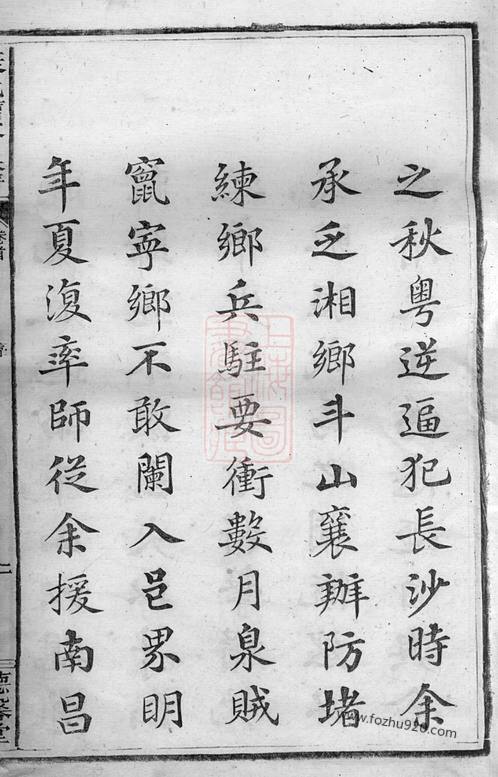 之秋粤逆逼犯長沙時余
承乏湘鄉斗山襄辦防堵
練鄉兵駐要衝數月泉賊
竄寧鄉不敢闌入邑界明
年夏復率師從余援南昌
www.fozhu920.com